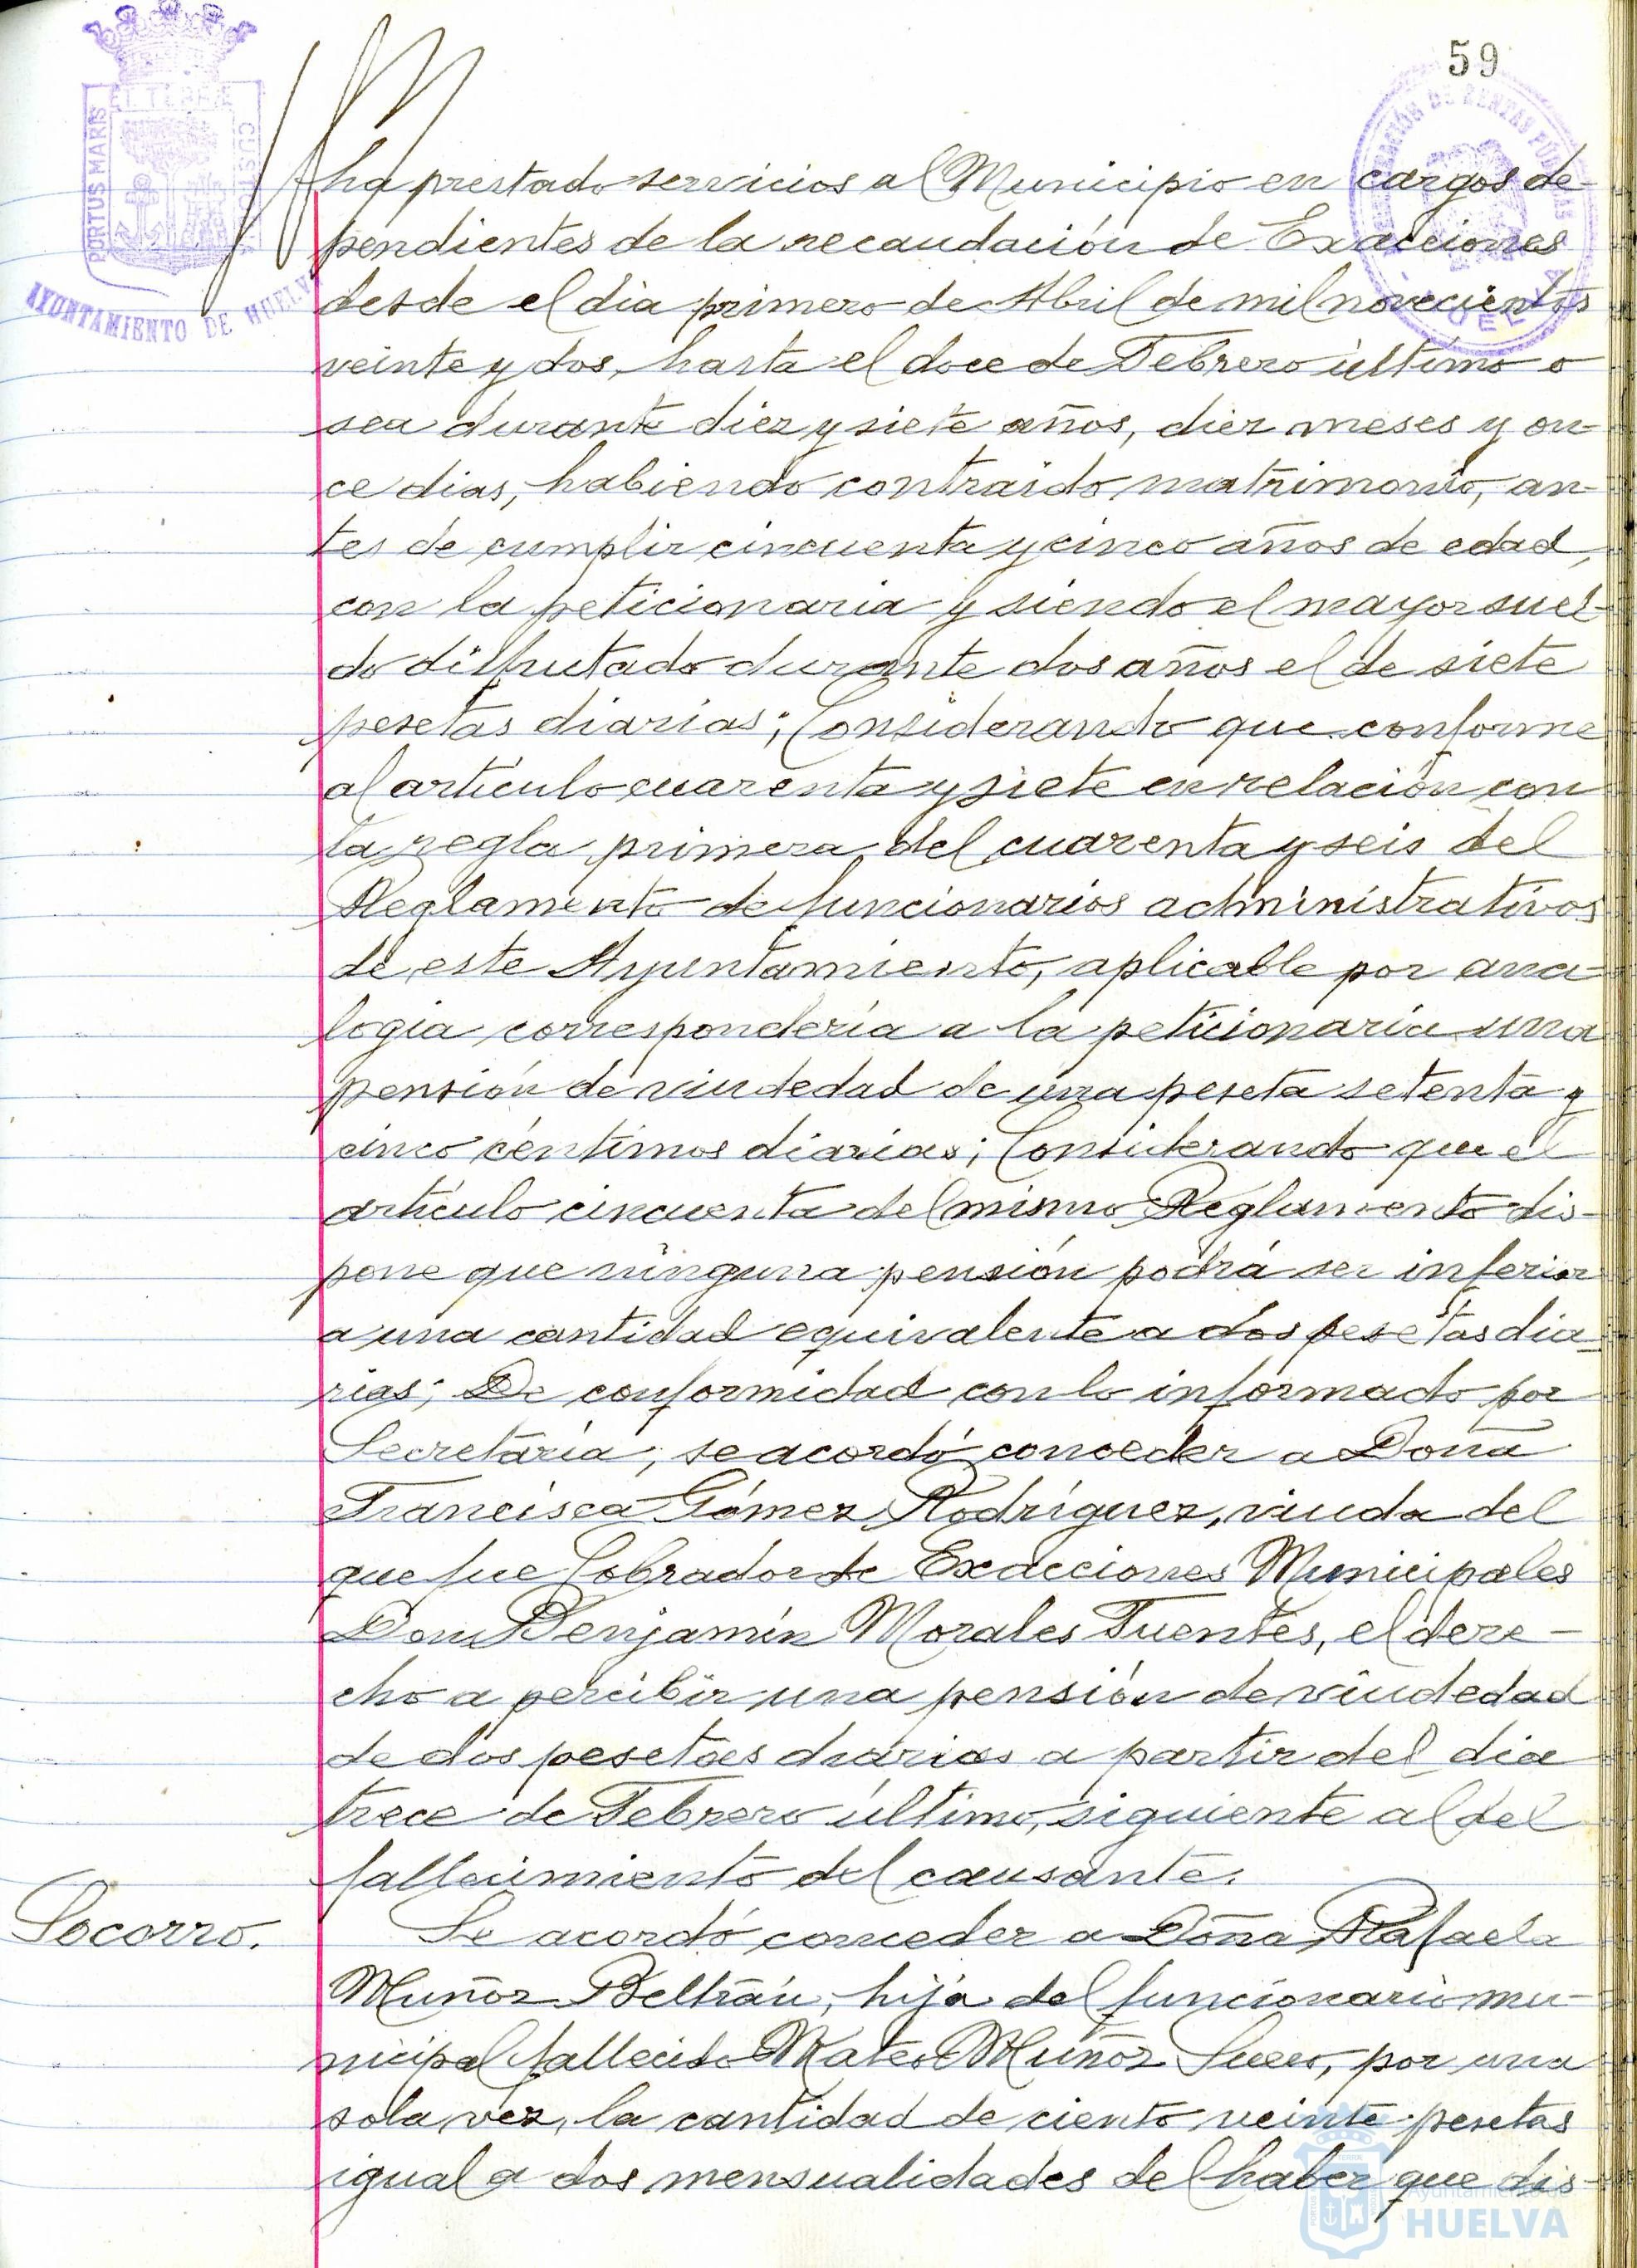 59
ET TERRÆ
PORTUS MARIS
CUST
AYUNTAMIENTO DE HUELVA
DE RENTAS PÚBLICAS
HUELVA
ha prestado servicios al Municipio en cargos de-
pendientes de la recaudación de Exacciones
desde el dia primero de Abril de mil novecientos
veinte y dos, hasta el doce de Febrero último o
sea durante diez y siete años, diez meses y on-
ce dias, habiendo contraído matrimonio, an-
tes de cumplir cincuenta y cinco años de edad,
con la peticionaria y siendo el mayor suel-
do disfrutado durante dos años el de siete
pesetas diarias; Considerando que conforme
al artículo cuarenta y siete en relación con
la regla primera del cuarenta y seis del
Reglamento de funcionarios administrativos
de este Ayuntamiento, aplicable por ana-
logia correspondería a la peticionaria una
pensión de viudedad de una peseta setenta y
cinco céntimos diarias; Considerando que el
artículo cincuenta del mismo Reglamento dis-
pone que ninguna pensión podrá ser inferior
a una cantidad equivalente a dos pesetas dia-
rias; De conformidad con lo informado por
Secretaría, se acordó conceder a Doña
Francisca Gómez Rodríguez, viuda del
que fue Cobrador de Exacciones Municipales
Don Benjamín Morales Fuentes, el dere-
cho a percibir una pensión de viudedad
de dos pesetas diarias a partir del dia
trece de Febrero último, siguiente al del
fallecimiento del causante.
Socorro. Se acordó conceder a Doña Rafaela
Muñoz Beltrán, hija del funcionario mu-
nicipal fallecido Mateo Muñoz, por una
sola vez, la cantidad de ciento veinte pesetas
igual a dos mensualidades del haber que dis-
Ayuntamiento de
HUELVA